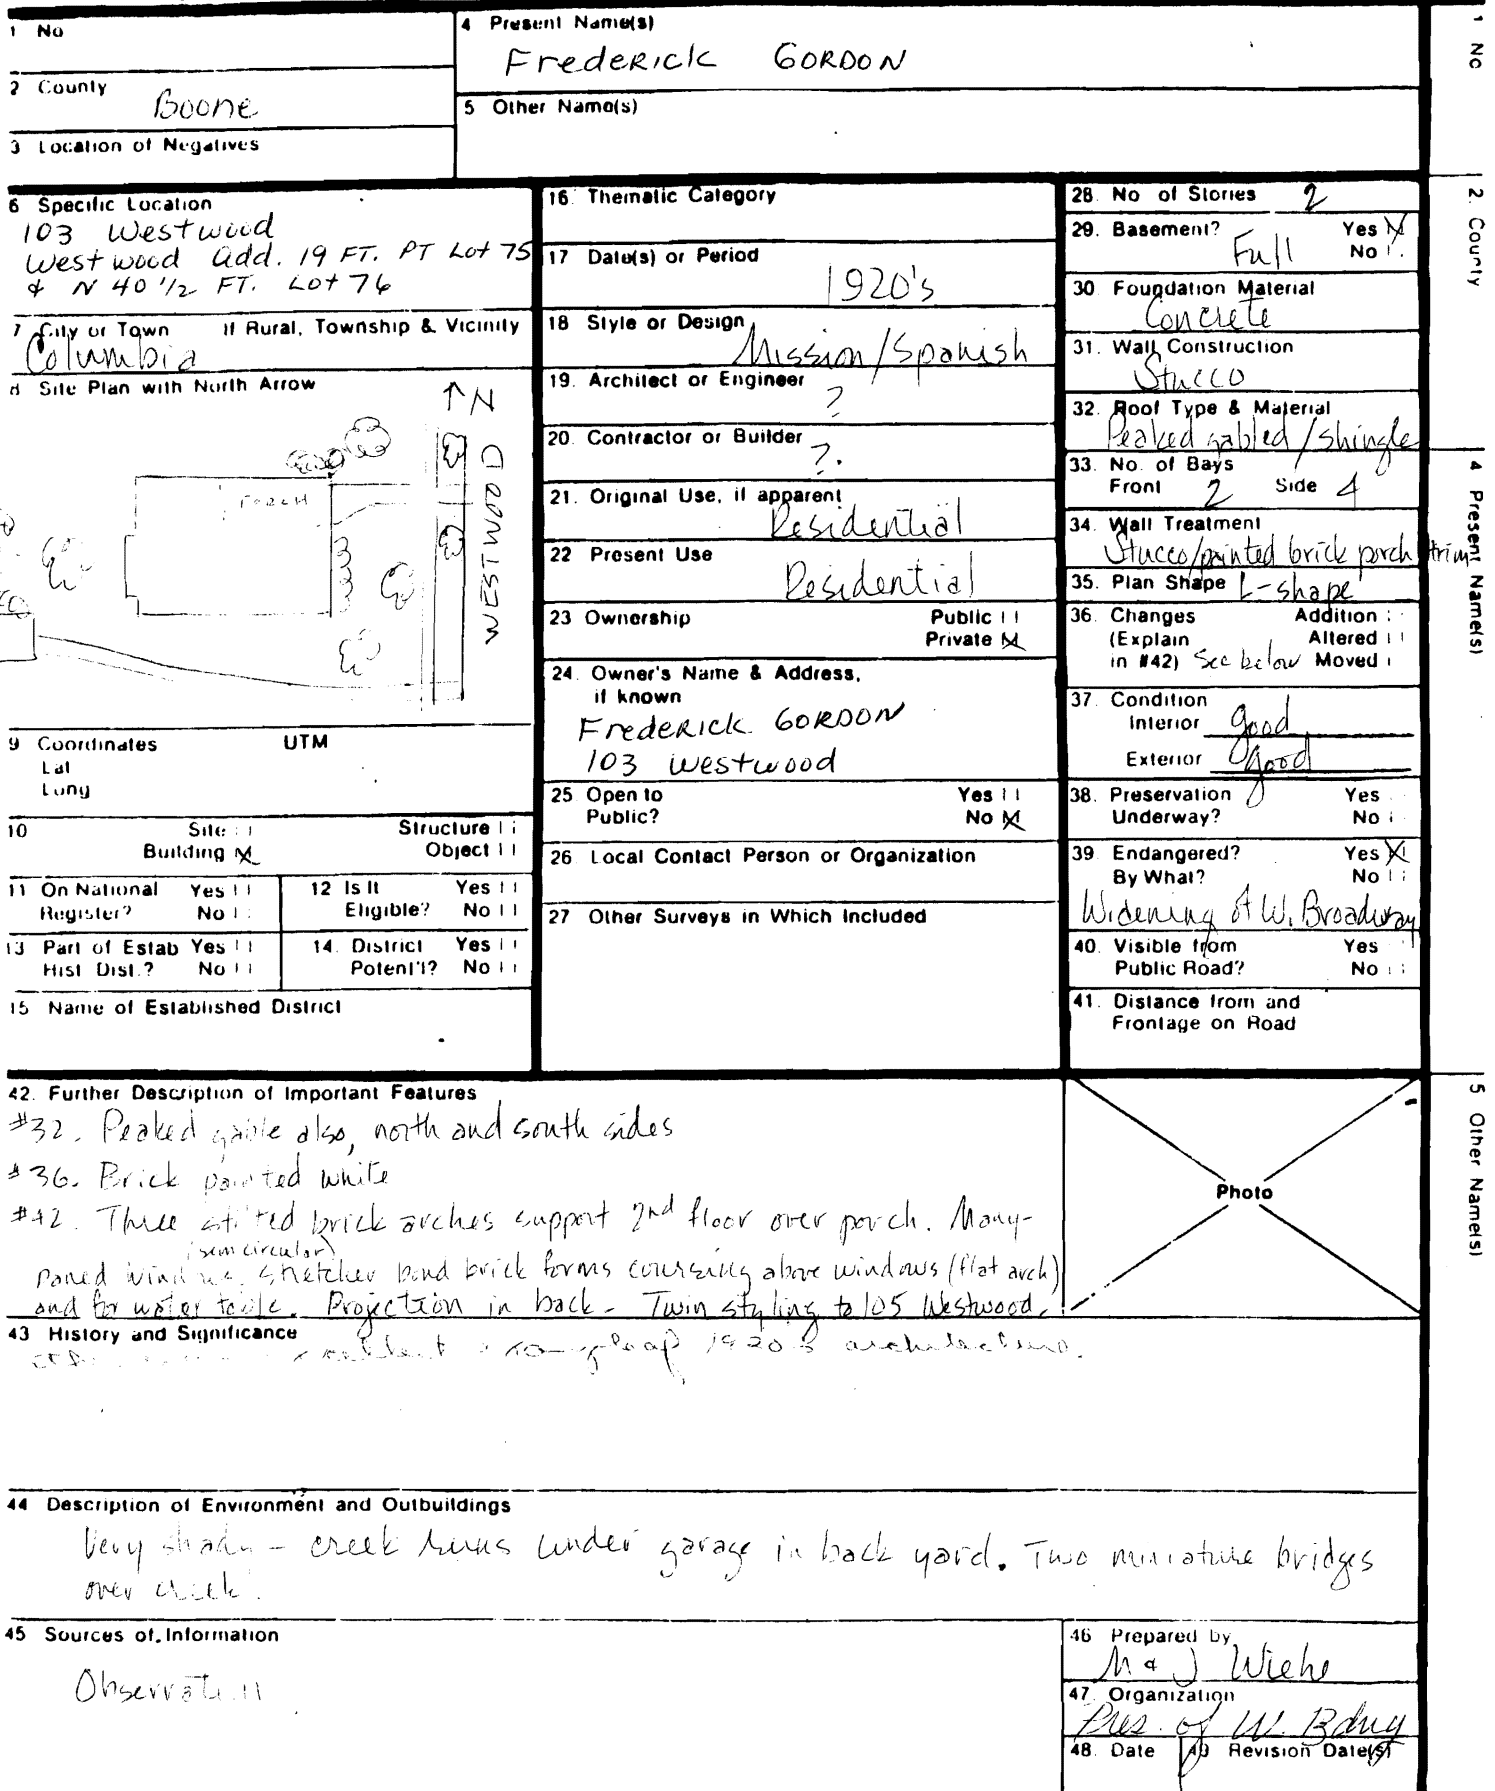 1 No
4 Present Name(s)
Frederick GORDON
2 County
Boone
5 Other Name(s)
3 Location of Negatives
6 Specific Location
103 Westwood
Westwood Add. 19 FT. PT Lot 75
& N 40 1/2 FT. Lot 76
7 City or Town If Rural, Township & Vicinity
Columbia
8 Site Plan with North Arrow
N
PORCH
WESTWOOD
9 Coordinates UTM
Lat
Long
10 Site
Structure
Building X
Object
11 On National Register? Yes No
12 Is It Eligible? Yes No
13 Part of Estab Hist Dist.? Yes No
14. District Potent'l? Yes No
15 Name of Established District
16. Thematic Category
17 Date(s) or Period
1920's
18 Style or Design
Mission/Spanish
19. Architect or Engineer
?
20. Contractor or Builder
?.
21. Original Use, if apparent
Residential
22 Present Use
Residential
23 Ownership Public
Private X
24. Owner's Name & Address,
if known
Frederick GORDON
103 Westwood
25. Open to Yes
Public? No X
26. Local Contact Person or Organization
27 Other Surveys in Which Included
28. No of Stories 2
29. Basement? Yes X
Full No
30. Foundation Material
Concrete
31. Wall Construction
Stucco
32. Roof Type & Material
Peaked gabled/shingle
33. No. of Bays
Front 2 Side 4
34. Wall Treatment
Stucco/painted brick porch trim
35. Plan Shape L-shape
36. Changes Addition
(Explain Altered
in #42) See below Moved
37. Condition
Interior good
Exterior good
38. Preservation Yes
Underway? No
39. Endangered? Yes X
By What? No
Widening of W. Broadway
40. Visible from Yes
Public Road? No
41. Distance from and
Frontage on Road
42. Further Description of Important Features
#32. Peaked gable also, north and south sides
#36. Brick painted white
#42. Three stilted brick arches support 2nd floor over porch. Many-
(semicircular)
paned windows, stretcher bond brick forms coursing above windows (flat arch)
and for water table. Projection in back - Twin styling to 105 Westwood.
Photo
43 History and Significance
excellent 1920's architecture.
44 Description of Environment and Outbuildings
Very shady - creek runs under garage in back yard. Two miniature bridges
over creek.
45 Sources of Information
Observation
46 Prepared by
M & J Wiehe
47. Organization
Pres. of W. Bdwy
48. Date 49 Revision Date(s)
1 No
2. County
4 Present Name(s)
5 Other Name(s)